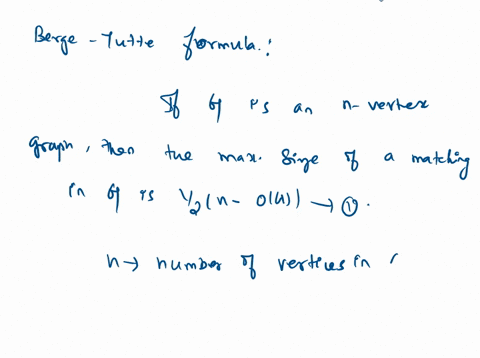 Berge - Tutte formula:
If G is an n-vertex
graph, then the max. size of a matching
in G is 1/2(n - O(G)) → ①.
n → number of vertices in